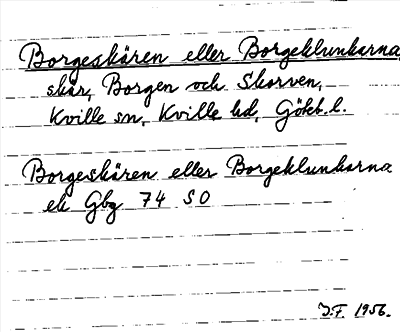 Borgeskären eller Borgeklunkarna,
skär, Borgen och Skorven,
Kville sn, Kville hd, Göteb. l.
Borgeskären eller Borgeklunkarna
ek Gbg 74 SO
J.F. 1956.